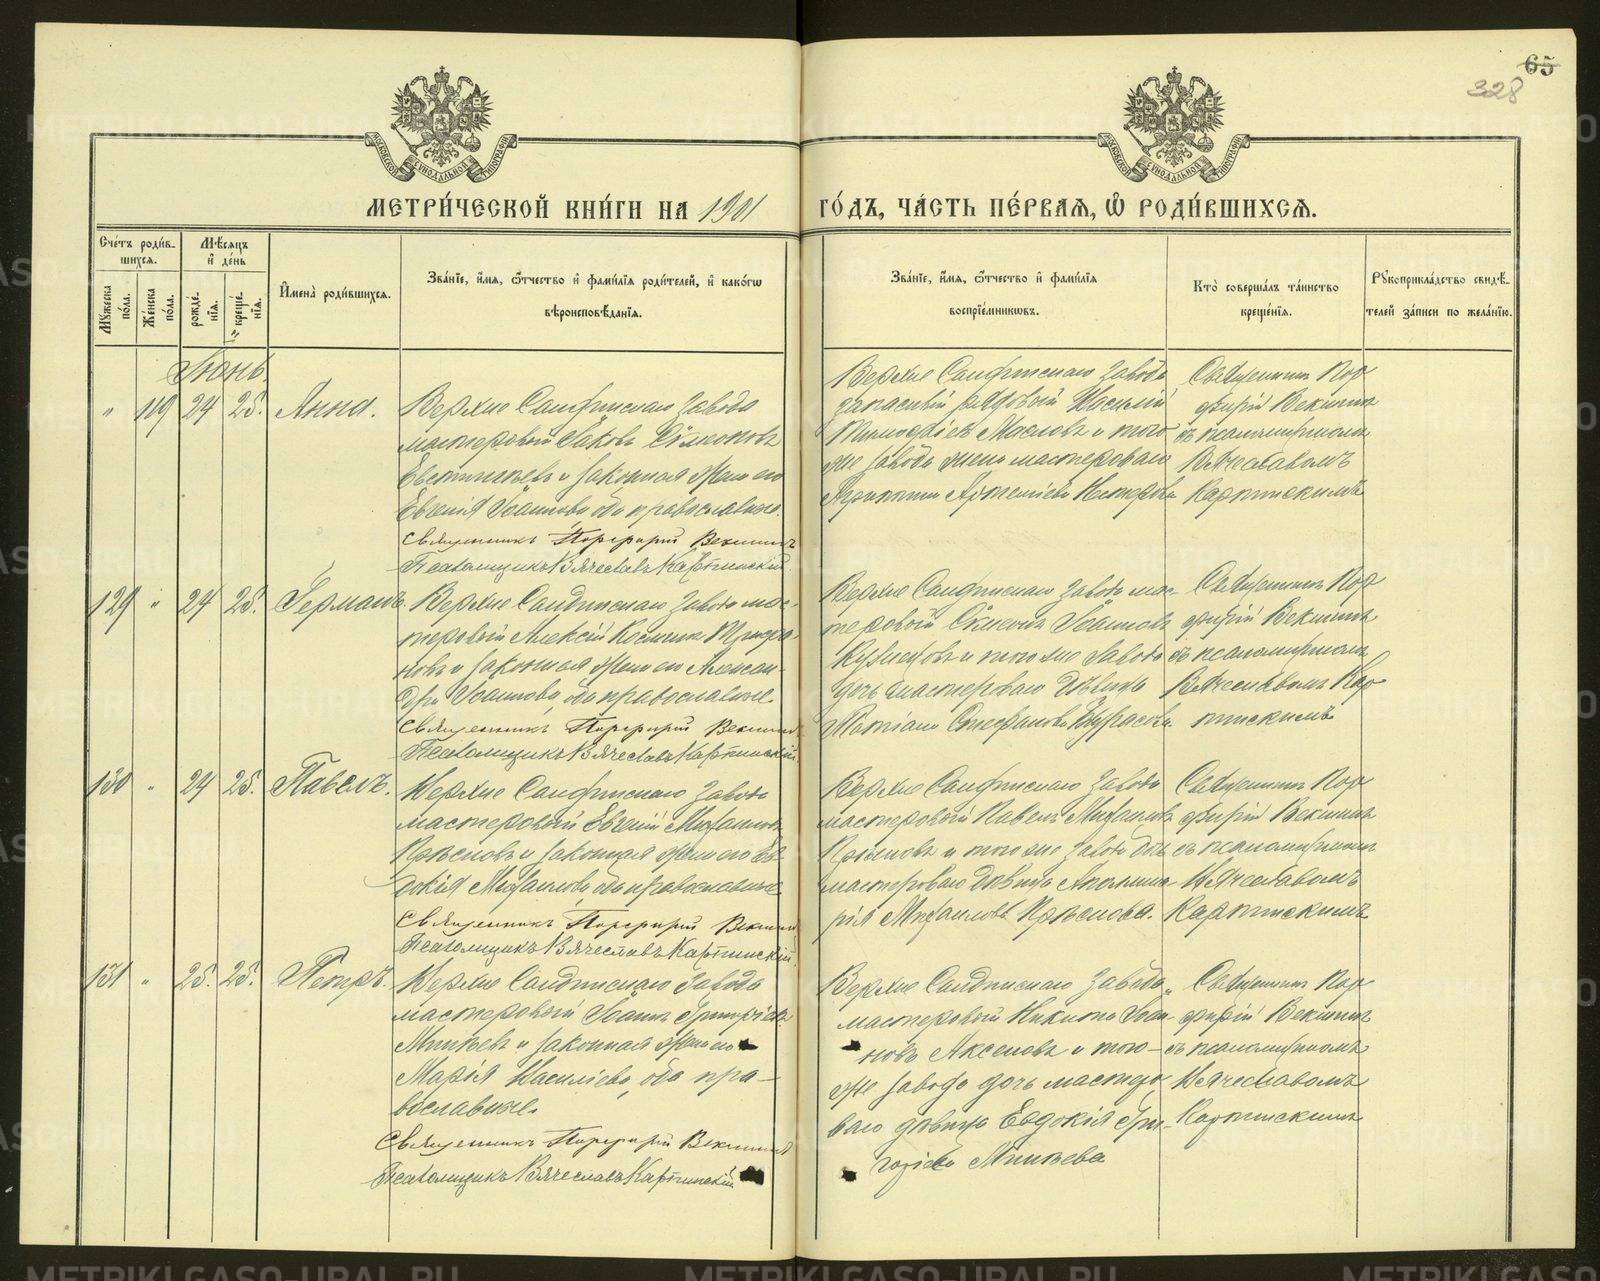 65
328
МОСКОВСКОЙ СѴНОДАЛЬНОЙ ТИПОГРАФІИ
МОСКОВСКОЙ СѴНОДАЛЬНОЙ ТИПОГРАФІИ
МЕТРИ́ЧЕСКОЙ КНИ́ГИ НА 1901
ГО́ДЪ, ЧА́СТЬ ПЕ́РВАЯ, Ѽ РОДИ́ВШИХСЯ.
Сче́тъ роди́в-
шихся.
Мꙋжеска по́ла.
Же́нска по́ла.
Мѣ́сяцъ
и҆ де́нь
рожде́-
нїѧ.
креще́-
нїѧ.
И҆мена̀ роди́вшихся.
Зва́нїе, и҆́мѧ, ѻ҆́тчество и҆ фами́лїѧ роди́телей, и҆ како́гѡ
вѣроисповѣ́данїѧ.
Зва́нїе, и҆́мѧ, ѻ҆́тчество и҆ фами́лїѧ
воспрїе́мникѡвъ.
Кто̀ соверша́лъ та́инство
креще́нїѧ.
Рꙋкоприкла́дство свидѣ́-
телей за́писи по жела́нїю.
Іюнь.
" 119 24 25. Анна.
Верхне Салдинскаго завода
мастеровой Іаковъ Симеоновъ
и законная жена его
Евгенія Іоаннова, оба православные.
Священникъ Порфирий Векшинъ
Псаломщикъ Вячеславъ Карпинский.
Верхне Салдинскаго завода
запасный рядовой Василій
Тимофѣевъ Масловъ и того
же завода жена мастероваго
Нестерова
Священникъ Пор-
фирій Векшинъ
съ псаломщикомъ
Вячеславомъ
Карпинскимъ
129 " 24 25. Германъ.
Верхне Салдинскаго завода мас-
теровый Алексій Косьминъ Трифо-
новъ и законная жена его Алексан-
дра Іоаннова, оба православные
Священникъ Порфирий Векшинъ
Псаломщикъ Вячеславъ Карпинский.
Верхне Салдинскаго завода мас-
теровой Симеонъ Іоанновъ
Кузнецовъ и того же завода
дочь мастероваго дѣвица
Татіана Стефанова
Священникъ Пор-
фирій Векшинъ
съ псаломщикомъ
Вячеславомъ Кар-
пинскимъ
130 " 24 25. Павелъ.
Верхне Салдинскаго завода
мастеровый Евгеній Михаиловъ
и законная жена его Ев-
докія Михаилова, оба православные
Священникъ Порфирий Векшинъ
Псаломщикъ Вячеславъ Карпинский.
Верхне Салдинскаго завода
мастеровой Павелъ Михаиловъ
и того же завода дочь
мастероваго дѣвица Аполлина-
рія Михаилова
Священникъ Пор-
фирій Векшинъ
съ псаломщикомъ
Вячеславомъ
Карпинскимъ
131 " 25. 25. Петръ.
Верхне Салдинскаго завода
мастеровый Іоаннъ Григоріевъ
Минѣевъ и законная жена его
Марія Василіева, оба пра-
вославные.
Священникъ Порфирий Векшинъ
Псаломщикъ Вячеславъ Карпинский
Верхне Салдинскаго завода
мастеровой Никита Іоан-
новъ Аксеновъ и того-
же завода дочь мастеро-
ваго дѣвица Евдокія Гри-
горіева Минѣева
Священникъ Пор-
фирій Векшинъ
съ псаломщикомъ
Вячеславомъ
Карпинскимъ
METRIKI.GASO-URAL.RU